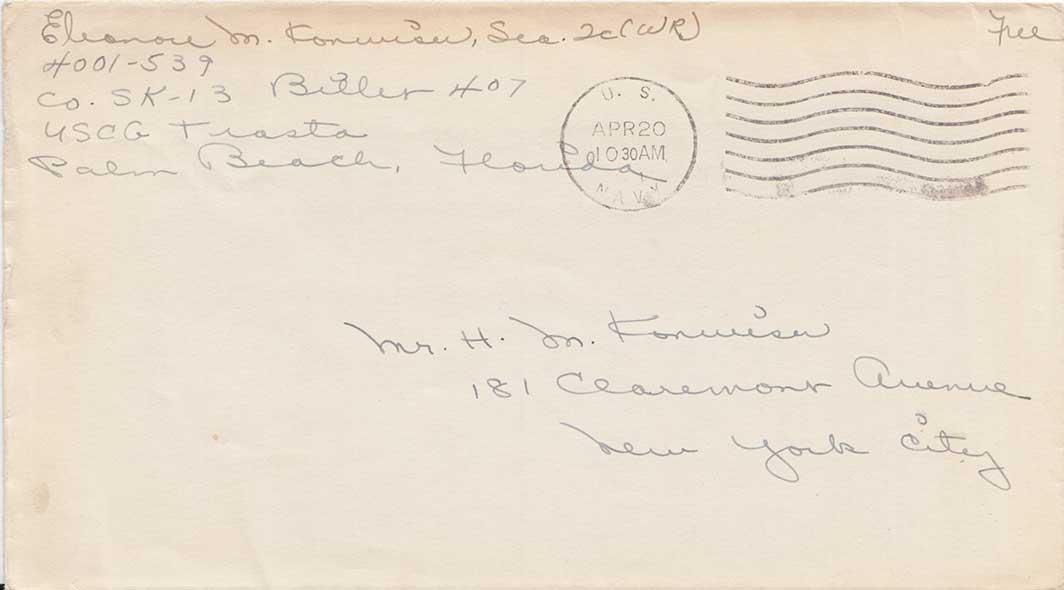 Eleanore M. Konwiser, Sea. 2c (WR)
Free
4001-539
Co. SK-13 Billet 407
USCG Trasta
Palm Beach, Florida
U. S.
APR 20
10 30 AM
NAVY
Mr. H. M. Konwiser
181 Claremont Avenue
New York City